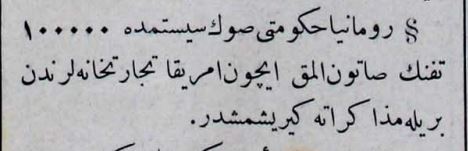 § رومانيا حكومتی صوك سيستمده ١٠٠٠٠٠
تفنك صاتون المق ايچون امريقا تجارتخانه‌لرندن
بريله مذاكراته كيريشمشدر.